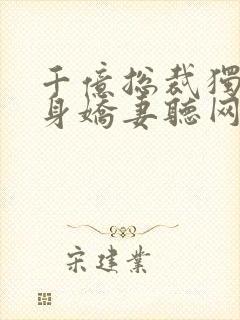 千億总裁獨
身嬌妻聽网
宋建業